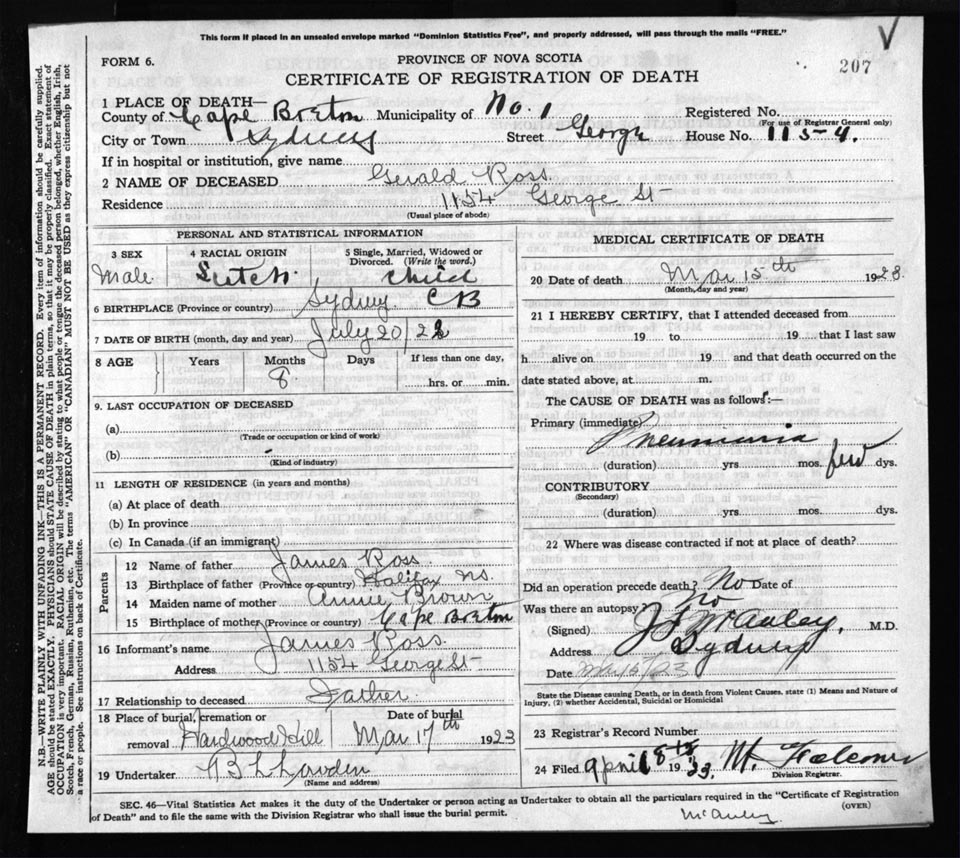 This form if placed in an unsealed envelope marked "Dominion Statistics Free", and properly addressed, will pass through the mails "FREE."
FORM 6.
PROVINCE OF NOVA SCOTIA
207
CERTIFICATE OF REGISTRATION OF DEATH
1 PLACE OF DEATH—
County of Cape Breton Municipality of No. 1 Registered No.
(For use of Registrar General only)
City or Town Sydney Street George House No. 115-4.
If in hospital or institution, give name
2 NAME OF DECEASED Gerald Ross
Residence 1154 George St
(Usual place of abode)
PERSONAL AND STATISTICAL INFORMATION
3 SEX 4 RACIAL ORIGIN 5 Single, Married, Widowed or Divorced. (Write the word.)
Male Scotch child
6 BIRTHPLACE (Province or country) Sydney CB
7 DATE OF BIRTH (month, day and year) July 20/22
8 AGE Years Months Days If less than one day,
8 hrs. or min.
9. LAST OCCUPATION OF DECEASED
(a)
(Trade or occupation or kind of work)
(b)
(Kind of industry)
11 LENGTH OF RESIDENCE (in years and months)
(a) At place of death
(b) In province
(c) In Canada (if an immigrant)
Parents
12 Name of father James Ross
13 Birthplace of father (Province or country) Halifax NS.
14 Maiden name of mother Annie Brown
15 Birthplace of mother (Province or country) Cape Breton
16 Informant's name James Ross.
Address 1154 George St
17 Relationship to deceased Father
18 Place of burial, cremation or removal Hardwood Hill Date of burial Mar 17th 1923
19 Undertaker
(Name and address)
MEDICAL CERTIFICATE OF DEATH
20 Date of death Mar 15th 1923.
(Month, day and year)
21 I HEREBY CERTIFY, that I attended deceased from
19 to 19 that I last saw
h alive on 19 and that death occurred on the
date stated above, at m.
The CAUSE OF DEATH was as follows:—
Primary (immediate) Pneumonia
(duration) yrs mos. few dys.
CONTRIBUTORY
(Secondary)
(duration) yrs mos. dys.
22 Where was disease contracted if not at place of death?
Did an operation precede death? No Date of
Was there an autopsy? no
(Signed) McAuley, M.D.
Address Sydney
Date
State the Disease causing Death, or in death from Violent Causes, state (1) Means and Nature of
Injury, (2) whether Accidental, Suicidal or Homicidal
23 Registrar's Record Number
24 Filed April 19
Division Registrar.
SEC. 46—Vital Statistics Act makes it the duty of the Undertaker or person acting as Undertaker to obtain all the particulars required in the "Certificate of Registration
of Death" and to file the same with the Division Registrar who shall issue the burial permit.
(OVER)
McAuley
N.B.—WRITE PLAINLY WITH UNFADING INK—THIS IS A PERMANENT RECORD. Every item of information should be carefully supplied.
AGE should be stated EXACTLY. PHYSICIANS should STATE CAUSE OF DEATH in plain terms, so that it may be properly classified. Exact statement of
OCCUPATION is very important. RACIAL ORIGIN will be described by stating to what people or tongue the deceased person belonged, whether English, Irish,
Scotch, French, German, Russian, Ruthenian, etc. The terms "AMERICAN" OR "CANADIAN" MUST NOT BE USED as they express citizenship but not
a race or people. See instructions on back of Certificate.